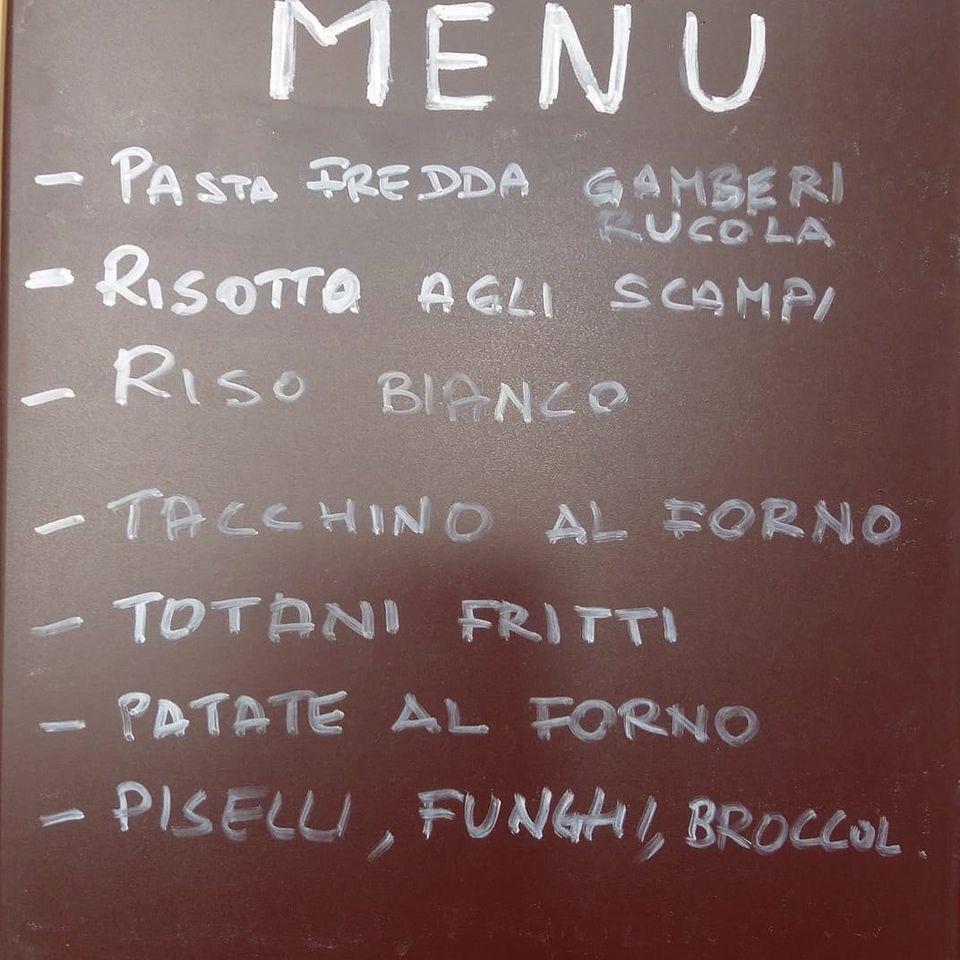 MENU
- PASTA FREDDA GAMBERI
RUCOLA
- RISOTTO AGLI SCAMPI
- RISO BIANCO
- TACCHINO AL FORNO
- TOTANI FRITTI
- PATATE AL FORNO
- PISELLI, FUNGHI, BROCCOL.